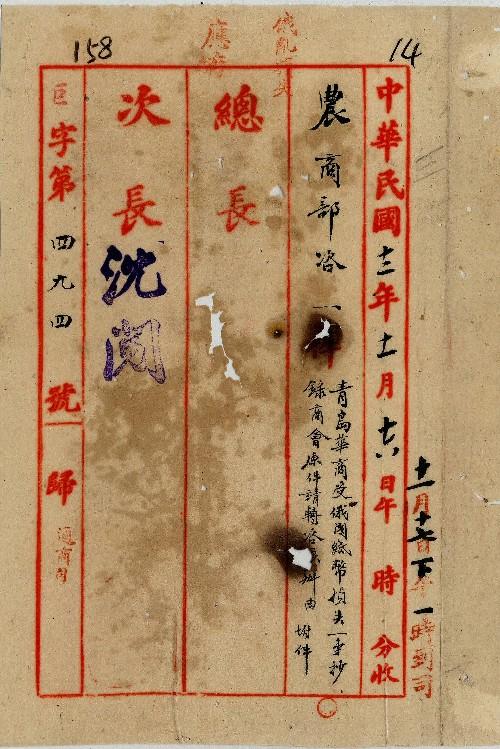 158
14
中華民國十三年十一月十六日午 時 分收
十一月十七日下午一時到司
農商部咨一件
青島華商受俄國紙幣損失一事抄
錄商會原件請轉咨 辦由 附件
總長
次長 沈閱
巨字第四九四號 歸通商司